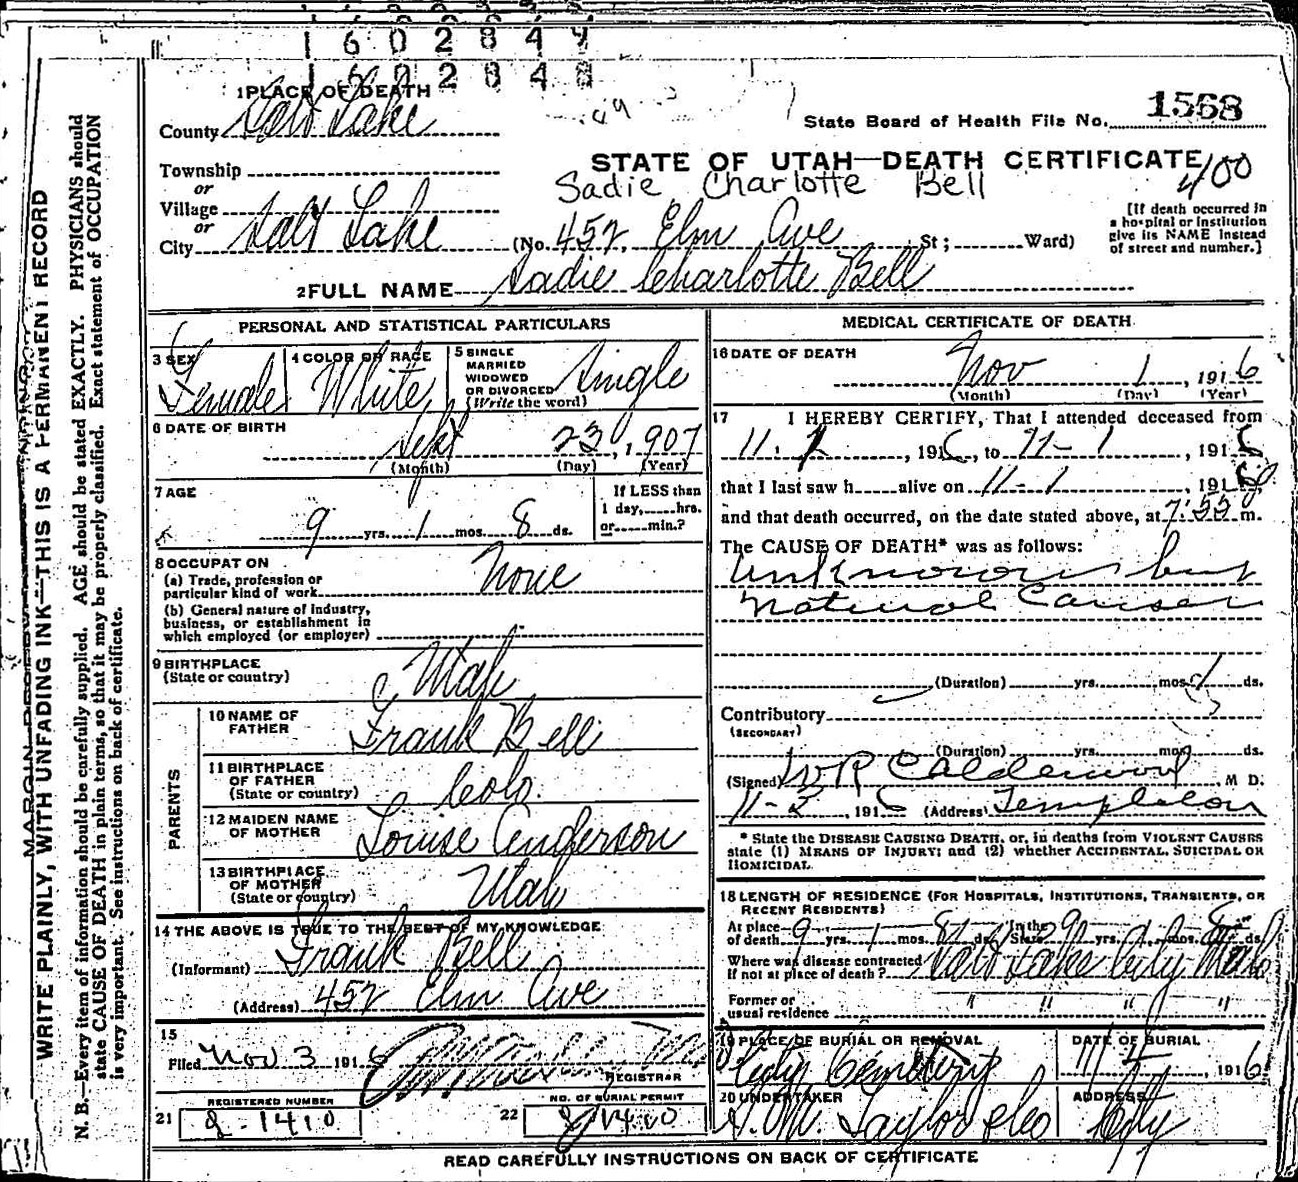 1602849
1602848
1 PLACE OF DEATH
County Salt Lake
State Board of Health File No. 1568
Township
or
Village
or
City Salt Lake
STATE OF UTAH—DEATH CERTIFICATE
400
Sadie Charlotte Bell
(No. 452 Elm Ave St; Ward)
[If death occurred in
a hospital or institution
give its NAME instead
of street and number.]
2 FULL NAME Sadie Charlotte Bell
PERSONAL AND STATISTICAL PARTICULARS
3 SEX Female
4 COLOR OR RACE White
5 SINGLE
MARRIED
WIDOWED
OR DIVORCED
(Write the word) Single
6 DATE OF BIRTH
Sept 23, 1907
(Month) (Day) (Year)
7 AGE
9 yrs. 1 mos. 8 ds.
If LESS than
1 day, hrs.
or min.?
8 OCCUPATION
(a) Trade, profession or
particular kind of work None
(b) General nature of industry,
business, or establishment in
which employed (or employer)
9 BIRTHPLACE
(State or country) Utah
PARENTS
10 NAME OF
FATHER Frank Bell
11 BIRTHPLACE
OF FATHER
(State or country) Colo.
12 MAIDEN NAME
OF MOTHER Louise Anderson
13 BIRTHPLACE
OF MOTHER
(State or country) Utah
14 THE ABOVE IS TRUE TO THE BEST OF MY KNOWLEDGE
(Informant) Frank Bell
(Address) 452 Elm Ave
15
Filed Nov 3 1916
REGISTRAR
REGISTERED NUMBER
21 2-1410
NO. OF BURIAL PERMIT
22
MEDICAL CERTIFICATE OF DEATH
16 DATE OF DEATH
Nov 1, 1916
(Month) (Day) (Year)
17 I HEREBY CERTIFY, That I attended deceased from
11-1, 1916, to 11-1, 1916
that I last saw h alive on 11-1, 1916,
and that death occurred, on the date stated above, at 7:55 m.
The CAUSE OF DEATH* was as follows:
Unknown but
Natural Causes
(Duration) yrs. mos. 1 ds.
Contributory
(SECONDARY)
(Duration) yrs. mos. ds.
(Signed) W R Calderwood M D.
11-2, 1916 (Address) Templeton
* State the DISEASE CAUSING DEATH, or, in deaths from VIOLENT CAUSES
state (1) MEANS OF INJURY; and (2) whether ACCIDENTAL, SUICIDAL OR
HOMICIDAL.
18 LENGTH OF RESIDENCE (FOR HOSPITALS, INSTITUTIONS, TRANSIENTS, OR
RECENT RESIDENTS)
At place
of death 9 yrs. 1 mos. 8 ds. In the
State 9 yrs. 1 mos. 8 ds.
Where was disease contracted
if not at place of death? Salt Lake City Utah
Former or
usual residence " " " "
19 PLACE OF BURIAL OR REMOVAL
City Cemetery
DATE OF BURIAL
11/4, 1916
20 UNDERTAKER
S. M. Taylor & Co
ADDRESS
City
READ CAREFULLY INSTRUCTIONS ON BACK OF CERTIFICATE
WRITE PLAINLY, WITH UNFADING INK—THIS IS A PERMANENT RECORD
N. B.—Every item of information should be carefully supplied. AGE should be stated EXACTLY. PHYSICIANS should
state CAUSE OF DEATH in plain terms, so that it may be properly classified. Exact statement of OCCUPATION
is very important. See instructions on back of certificate.